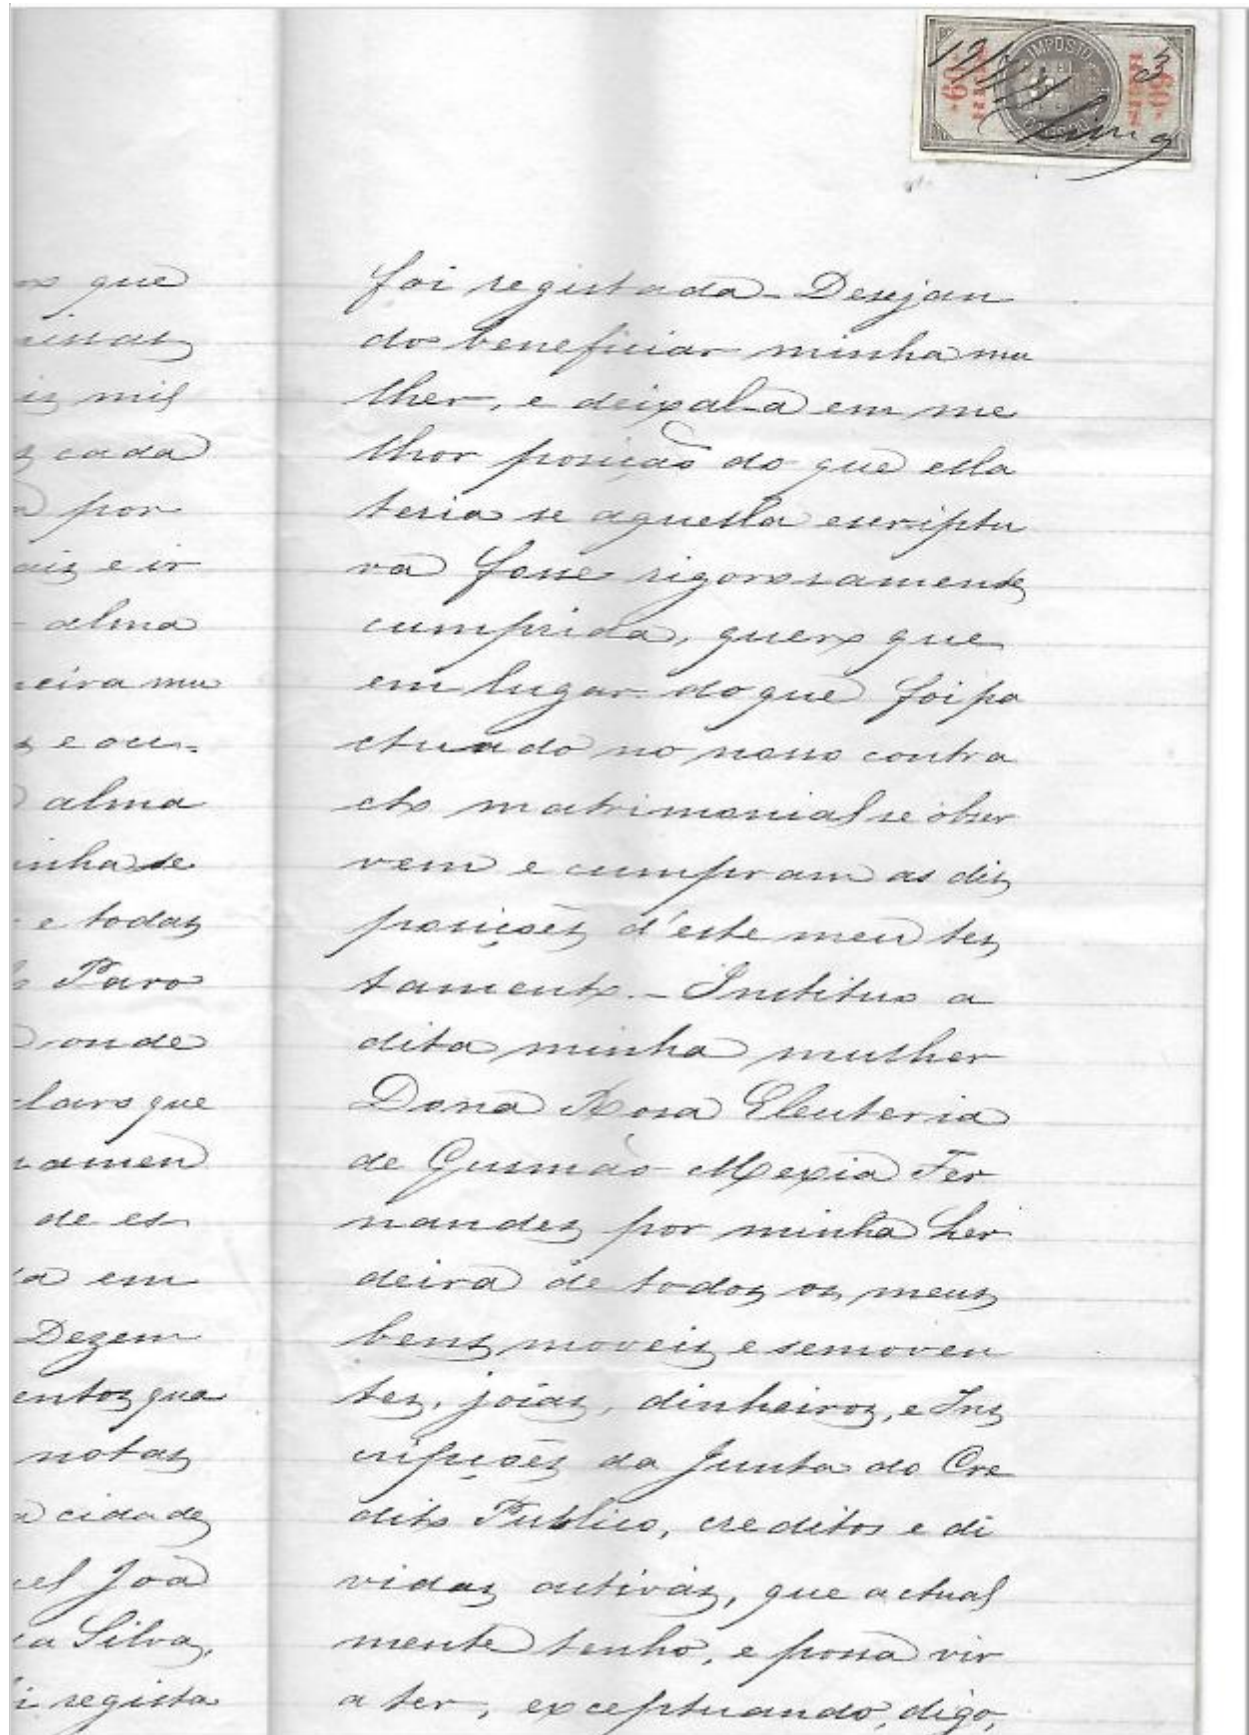 IMPOSTO
60
REIS
3
60
REIS
Lima
que
mil
cada
por
aiz e ir
alma
ceira mu
e ou-
alma
inha se
e todas
Paro
onde
claro que
samen
de es
a em
Dezem
entos qua
notas
a cidade
el Joã
a Silva,
i regista
foi registada - Desejan
do beneficiar minha mu
lher, e deixal-a em me
lhor posição do que ella
teria se aquella escriptu
ra fosse rigorosamente
cumprida, quero que
em lugar do que foi pa
ctuado no nosso contra
cto matrimonial se obser
vem e cumpram as dis
posições d'este meu tes
tamento. - Instituo a
dita minha mulher
Dona Rosa Eleuteria
de Gusmão Mexia Fer
nandes por minha her
deira de todos os meus
bens moveis e semoven
tes, joias, dinheiros, e Ins
cripções da Junta do Cre
dito Publico, creditos e di
vidas activas, que actual
mente tenho, e possa vir
a ter, exceptuando, digo,